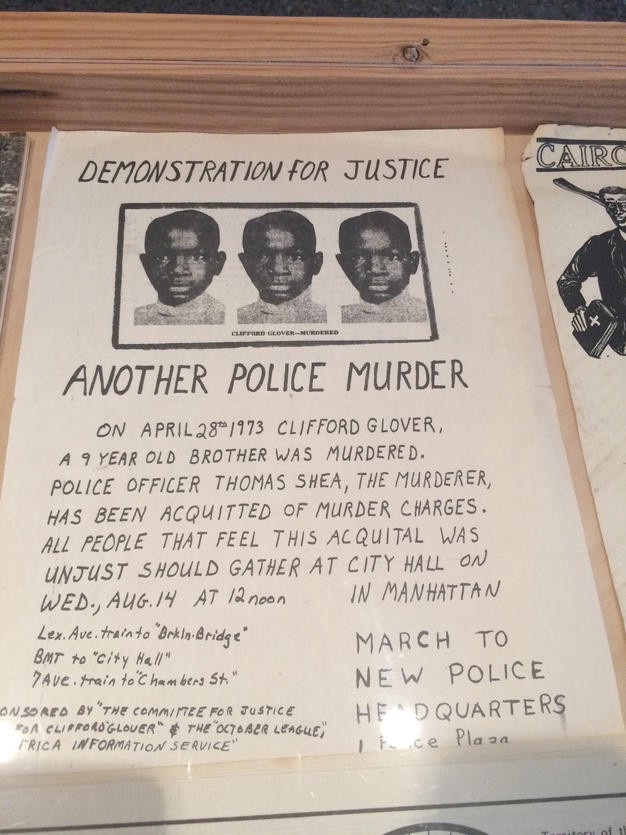 DEMONSTRATION FOR JUSTICE
CLIFFORD GLOVER—MURDERED
ANOTHER POLICE MURDER
ON APRIL 28th 1973 CLIFFORD GLOVER,
A 9 YEAR OLD BROTHER WAS MURDERED.
POLICE OFFICER THOMAS SHEA, THE MURDERER,
HAS BEEN ACQUITTED OF MURDER CHARGES.
ALL PEOPLE THAT FEEL THIS ACQUITAL WAS
UNJUST SHOULD GATHER AT CITY HALL ON
WED., AUG. 14 AT 12 noon IN MANHATTAN
Lex. Ave. train to "Brkln. Bridge"
BMT to "City Hall"
7 Ave. train to "Chambers St."
MARCH TO
NEW POLICE
HEADQUARTERS
1 Plaza
ONSORED BY "THE COMMITTEE FOR JUSTICE
FOR CLIFFORD GLOVER" & THE "OCTOBER LEAGUE,"
FRICA INFORMATION SERVICE"
CAIRO
Territory of